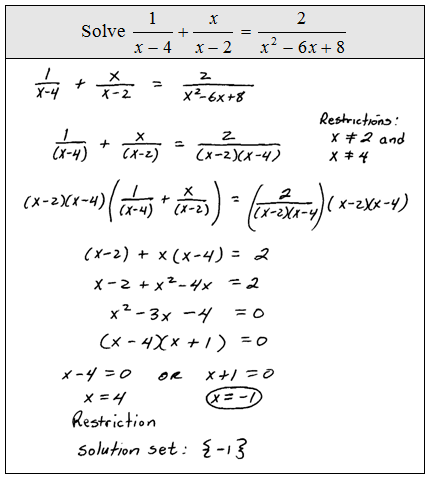 Solve 1/(x − 4) + x/(x − 2) = 2/(x² − 6x + 8)
1/(x-4) + x/(x-2) = 2/(x²-6x+8)
Restrictions:
x ≠ 2 and
x ≠ 4
1/(x-4) + x/(x-2) = 2/((x-2)(x-4))
(x-2)(x-4)(1/(x-4) + x/(x-2)) = (2/((x-2)(x-4)))(x-2)(x-4)
(x-2) + x(x-4) = 2
x - 2 + x² - 4x = 2
x² - 3x - 4 = 0
(x - 4)(x + 1) = 0
x - 4 = 0 OR x + 1 = 0
x = 4 x = -1
Restriction
solution set: {-1}